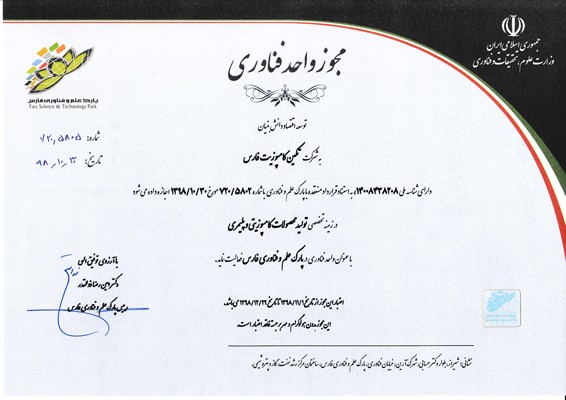 جمهوری اسلامی ایران
وزارت علوم، تحقیقات و فناوری
پارک علم و فناوری فارس
Fars Science & Technology Park
مجوز واحد فناوری
توسعه اقتصاد دانش بنیان
شماره: ۷۲۰٫۵۸۰۵
تاریخ: ۹۸٫۱۰٫۳۰
به شرکت تمکین کامپوزیت فارس
دارای شناسه ملی ۱۴۰۰۸۴۳۸۲۰۸، به استناد قرارداد منعقده با پارک علم و فناوری با شماره ۷۲۰/۵۸۰۲ مورخ ۱۳۹۸/۱۰/۳۰ اجازه داده می شود
در زمینه تخصصی تولید محصولات کامپوزیتی و پلیمری
با عنوان واحد فناوری در پارک علم و فناوری فارس فعالیت نماید.
با آرزوی توفیق الهی
رییس پارک علم و فناوری فارس
اعتبار این مجوز از تاریخ ۱۳۹۸/۱۱/۱ تا تاریخ ۱۳۹۸/۱۲/۲۹ می باشد.
این مجوز بدون هولوگرام و مهر برجسته فاقد اعتبار است.
نشانی: شیراز، بلوار دکتر حسابی، شهرک آرین، خیابان فناوری، پارک علم و فناوری فارس، ساختمان مرکز رشد نفت، گاز و پتروشیمی.